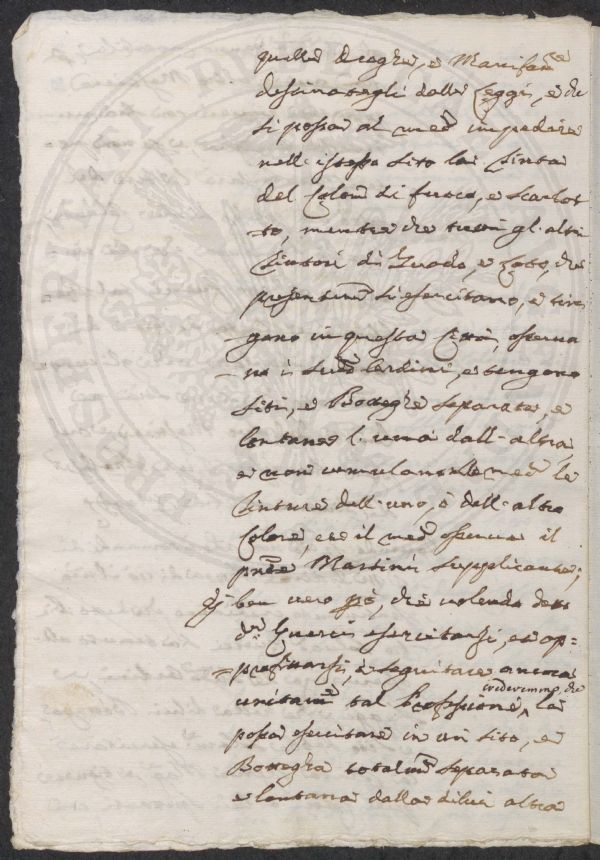 quelle Droghe, e Manifatt.re
destinategli dalle Leggi, e che
si possa al med.o impedire
nell'istesso sito la Tinta
del Color di fuoco, e Scarlat-
to, mentre che tutti gl'altri
Tintori di Guado, e che
presentem.te si esercitano, e tin-
gono in questa Città, osserva-
no i sud.i ordini, e tengono
siti, e Botteghe separate, e
lontane l'una dall'altra,
e non cumulano le
Tinture dell'uno, ò dell'altro
Colore, e il med.o osserva il
pnte Martini supplicante;
ben vero però, che volendo detto
Guerrini esercitarsi, et ap=
=profittarsi, e seguitare ancora
unitam.te tal Professione, crederemmo, che la
possa esercitare in un sito, e
Bottegha totalm.te separata
e lontana dalla di lui altra